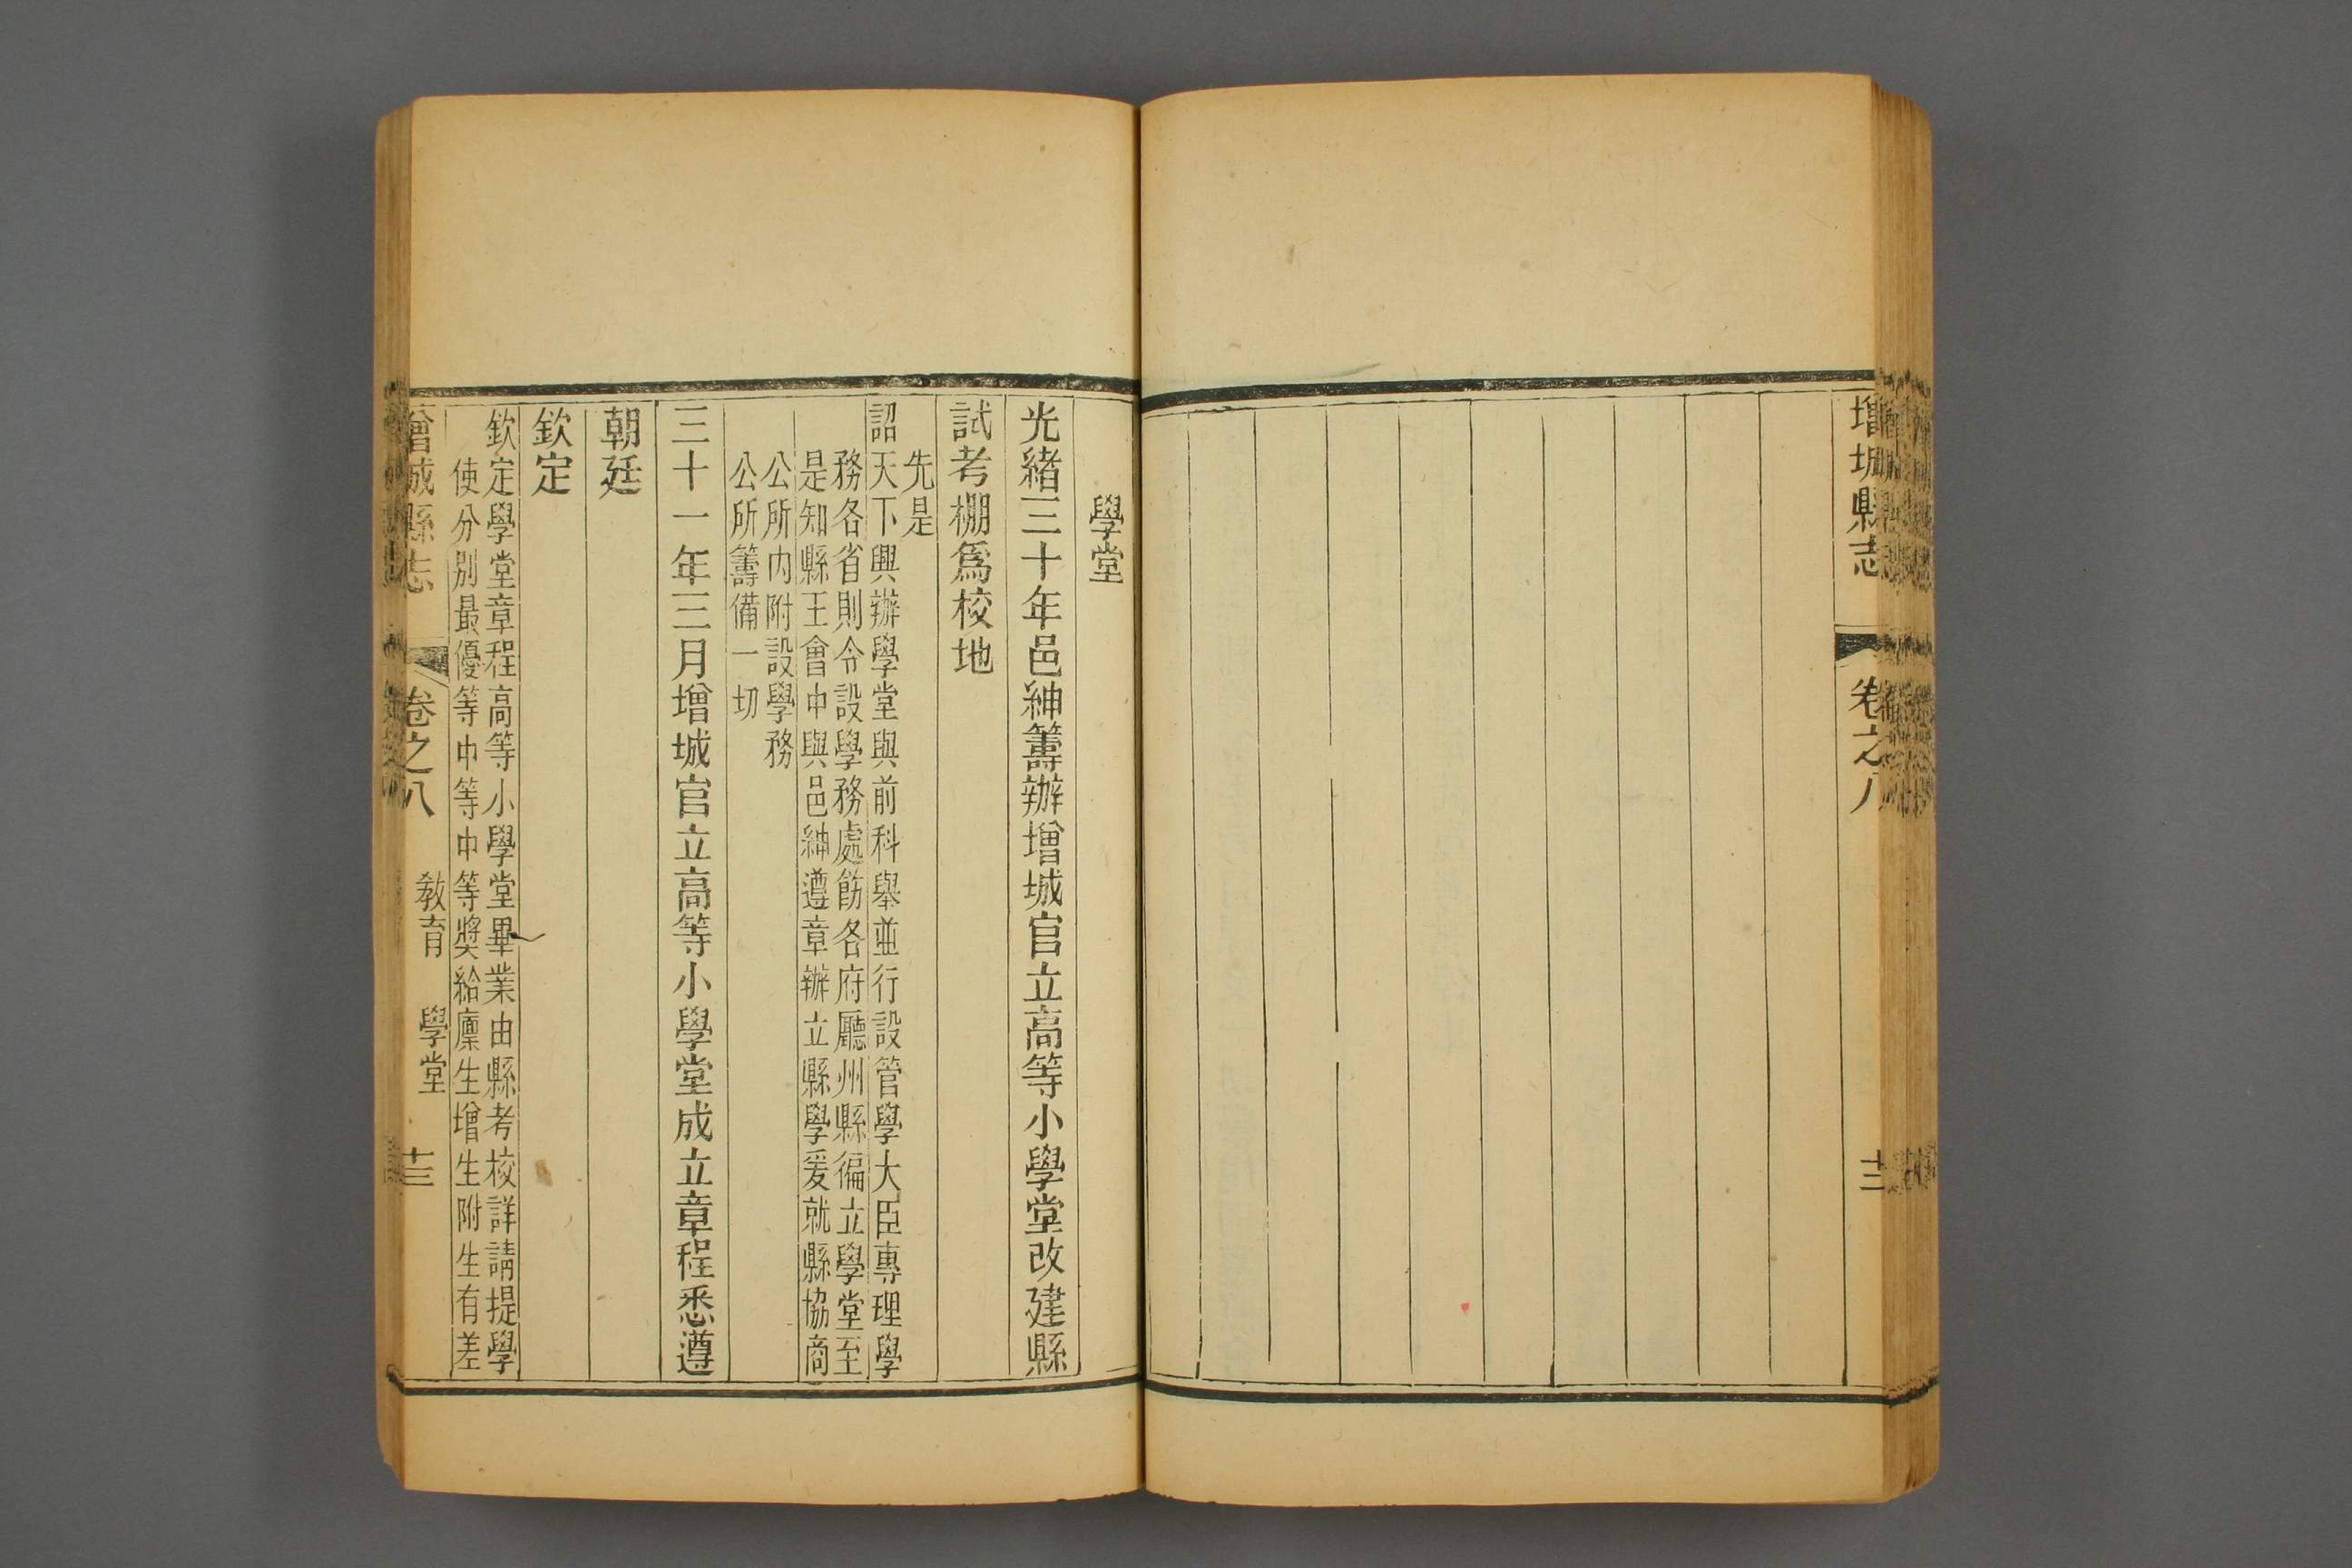 增城縣志
卷之八
十二
學堂
光緒三十年邑紳籌辦增城官立高等小學堂改建縣
試考棚爲校地
先是
詔天下興辦學堂與前科舉並行設管學大臣專理學
務各省則令設學務處飭各府廳州縣徧立學堂至
是知縣王會中與邑紳遵章辦立縣學爰就縣協商
公所內附設學務
公所籌備一切
三十一年三月增城官立高等小學堂成立章程悉遵
朝廷
欽定
欽定學堂章程高等小學堂畢業由縣考校詳請提學
使分別最優等中等中等獎給廩生增生附生有差
增城縣志
卷之八
教育
學堂
十三